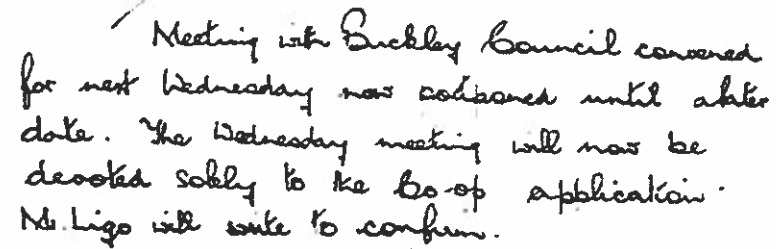 Meeting with Buckley Council convened
for next Wednesday now postponed until a later
date. The Wednesday meeting will now be
devoted solely to the Co-op application.
Mr. Ligo will write to confirm.